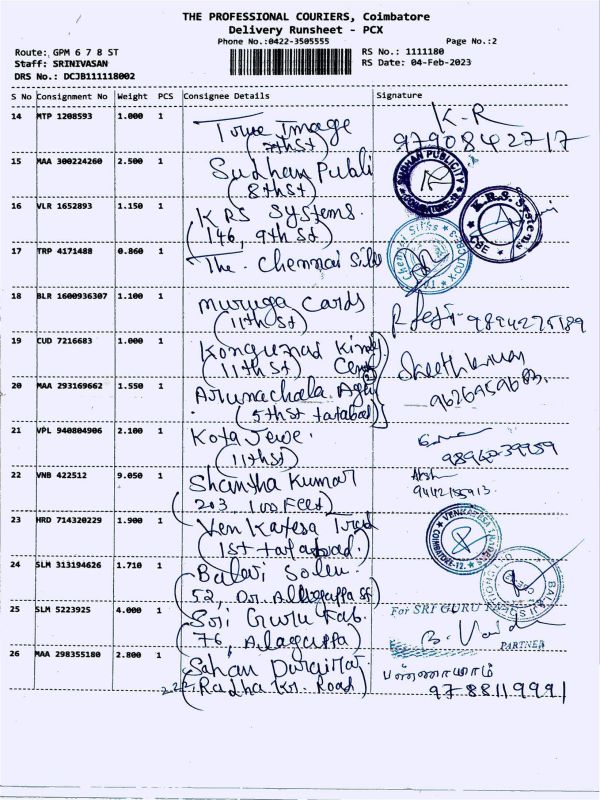 THE PROFESSIONAL COURIERS, Coimbatore
Delivery Runsheet - PCX
Phone No.:0422-3505555 Page No.:2
Route: GPM 6 7 8 ST RS No.: 1111180
Staff: SRINIVASAN RS Date: 04-Feb-2023
DRS No.: DCJB111118002
S No Consignment No Weight PCS Consignee Details Signature
14 MTP 1208593 1.000 1 True Image K-R
(7th St) 9790842717
15 MAA 300224260 2.500 1 Sudhan Publi SUDHAN PUBLICITY
(8th St) COIMBATORE-12
16 VLR 1652893 1.150 1 KRS Systems. K.R.S. Systems
(146, 9th St) CBE
17 TRP 4171488 0.860 1 The. Chennai Silks Chennai Silks
18 BLR 1600936307 1.100 1 muruga Cards
(11th St)
19 CUD 7216683 1.000 1 Kongunad
(11th St)
20 MAA 293169662 1.550 1 Arunachala Aga
(5th St tatabad)
21 VPL 940804906 2.100 1 Kota Jewe.
(11th St)
22 VNB 422512 9.050 1 Shantha Kumar
(203 100 Feet)
23 HRD 714320229 1.900 1 Venkatesa Trad VENKATESA TRADERS
(1st tatabad.) COIMBATORE-12.
24 SLM 313194626 1.710 1 Balaji
(52, Dr. Alagappa St)
25 SLM 5223925 4.000 1 Sri Guru Fab. For SRI GURU
(76, Alagappa) PARTNER
26 MAA 298355180 2.800 1
Radha Kr. Road) 9788119991